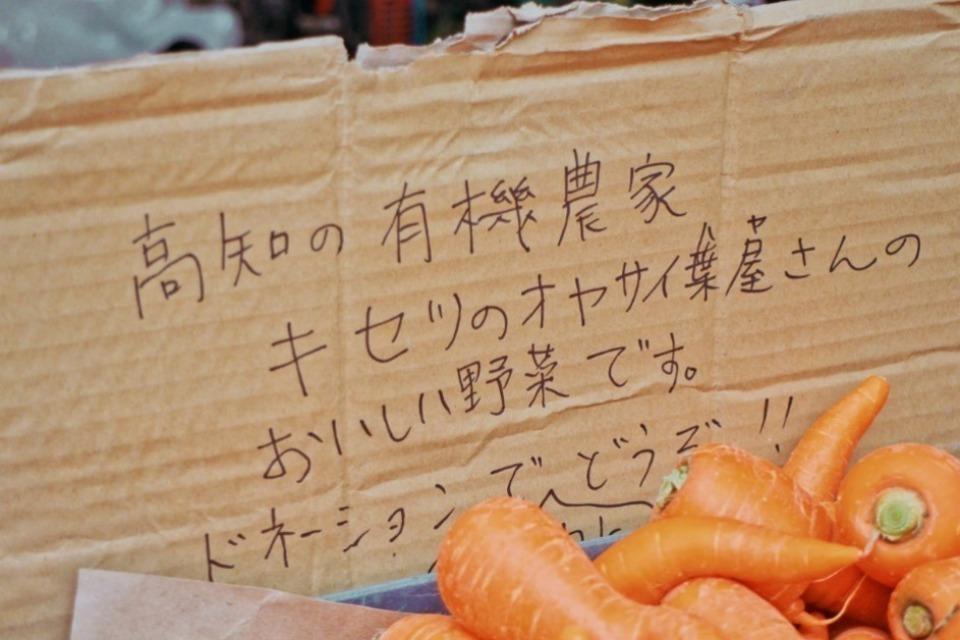 高知の有機農家
キセツのオヤサイ葉屋さんの
おいしい野菜です。
ドネーションでどうぞ!!